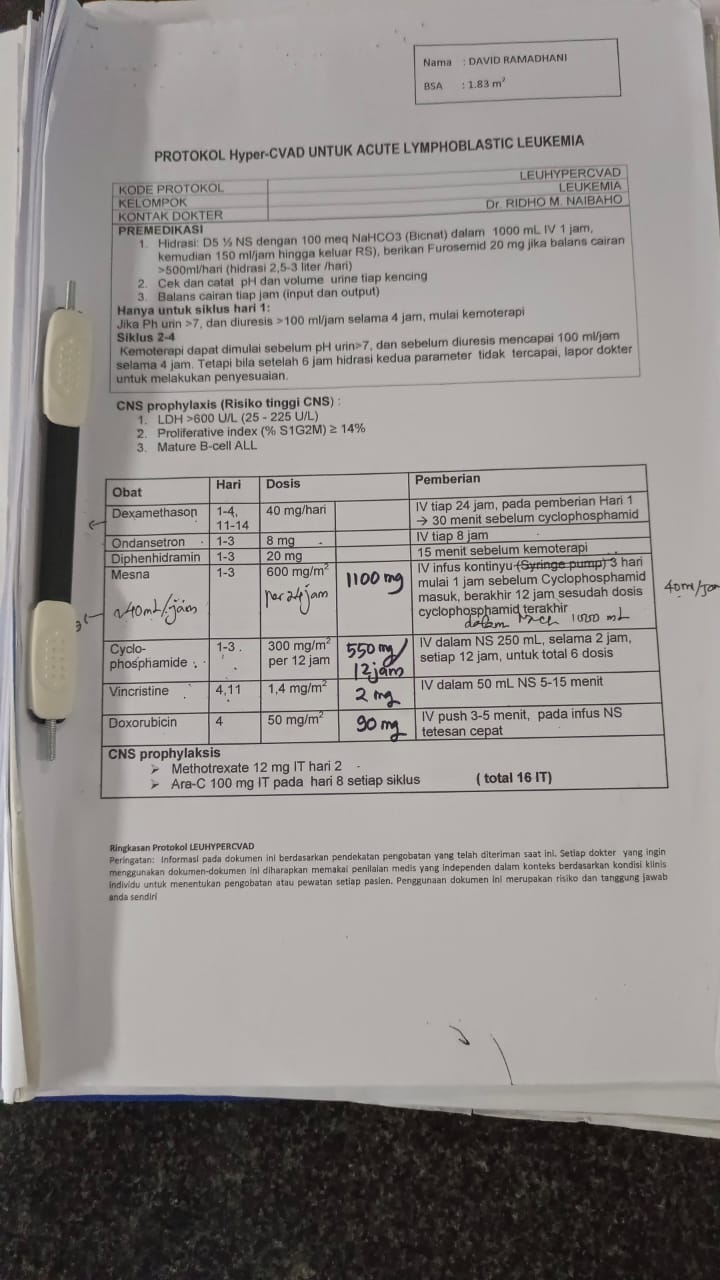 Nama : DAVID RAMADHANI
BSA : 1.83 m²
PROTOKOL Hyper-CVAD UNTUK ACUTE LYMPHOBLASTIC LEUKEMIA
KODE PROTOKOL LEUHYPERCVAD
KELOMPOK LEUKEMIA
KONTAK DOKTER Dr. RIDHO M. NAIBAHO
PREMEDIKASI
1. Hidrasi: D5 ½ NS dengan 100 meq NaHCO3 (Bicnat) dalam 1000 mL IV 1 jam,
kemudian 150 ml/jam hingga keluar RS), berikan Furosemid 20 mg jika balans cairan
>500ml/hari (hidrasi 2,5-3 liter /hari)
2. Cek dan catat pH dan volume urine tiap kencing
3. Balans cairan tiap jam (input dan output)
Hanya untuk siklus hari 1:
Jika Ph urin >7, dan diuresis >100 ml/jam selama 4 jam, mulai kemoterapi
Siklus 2-4
Kemoterapi dapat dimulai sebelum pH urin>7, dan sebelum diuresis mencapai 100 ml/jam
selama 4 jam. Tetapi bila setelah 6 jam hidrasi kedua parameter tidak tercapai, lapor dokter
untuk melakukan penyesuaian.
CNS prophylaxis (Risiko tinggi CNS) :
1. LDH >600 U/L (25 - 225 U/L)
2. Proliferative index (% S1G2M) ≥ 14%
3. Mature B-cell ALL
Obat Hari Dosis Pemberian
Dexamethason 1-4, 40 mg/hari IV tiap 24 jam, pada pemberian Hari 1
11-14 → 30 menit sebelum cyclophosphamid
Ondansetron 1-3 8 mg IV tiap 8 jam
Diphenhidramin 1-3 20 mg 15 menit sebelum kemoterapi
Mesna 1-3 600 mg/m² 1100 mg IV infus kontinyu (Syringe pump) 3 hari
per 24 jam mulai 1 jam sebelum Cyclophosphamid
~40mL/jam masuk, berakhir 12 jam sesudah dosis 40ml/jam
cyclophosphamid terakhir
dalam NaCl 1000 mL
Cyclo- 1-3 . 300 mg/m² 550 mg/ IV dalam NS 250 mL, selama 2 jam,
phosphamide per 12 jam 12 jam setiap 12 jam, untuk total 6 dosis
Vincristine 4,11 1,4 mg/m² 2 mg IV dalam 50 mL NS 5-15 menit
Doxorubicin 4 50 mg/m² 90 mg IV push 3-5 menit, pada infus NS
tetesan cepat
CNS prophylaksis
➢ Methotrexate 12 mg IT hari 2
➢ Ara-C 100 mg IT pada hari 8 setiap siklus ( total 16 IT)
Ringkasan Protokol LEUHYPERCVAD
Peringatan: Informasi pada dokumen ini berdasarkan pendekatan pengobatan yang telah diteriman saat ini. Setiap dokter yang ingin
menggunakan dokumen-dokumen ini diharapkan memakai penilaian medis yang independen dalam konteks berdasarkan kondisi klinis
individu untuk menentukan pengobatan atau pewatan setiap pasien. Penggunaan dokumen ini merupakan risiko dan tanggung jawab
anda sendiri